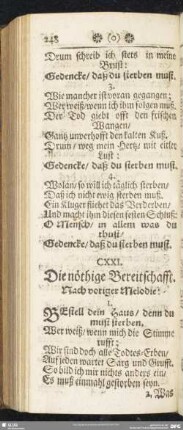 248 ❀ (o) ❀
Drum schreib ich stets in meine
Brust:
Gedencke/ daß du sterben must.
3.
Wie mancher ist voran gegangen;
Wer weiß/ wenn ich ihm folgen muß.
Der Tod giebt offt den frischen
Wangen/
Gantz unverhofft den kalten Kuß.
Drum/ weg mein Hertz/ mit eitler
Lust:
Gedencke/ daß du sterben must.
4.
Wolan/ so will ich täglich sterben/
Daß ich nicht ewig sterben muß.
Ein Kluger fliehet das Verderben/
Und macht ihm diesen festen Schluß:
O Mensch/ in allem was du
thust/
Gedencke/ daß du sterben must.
CXXI.
Die nöthige Bereitschafft.
Nach voriger Melodie:
1.
BEstell dein Haus/ denn du
must sterben.
Wer weiß/ wenn mich die Stimme
rufft;
Wir sind doch alle Todtes-Erben/
Auf jeden wartet Sarg und Grufft.
So bild ich mir nichts anders ein/
Es muß einmahl gestorben seyn.
2. Was